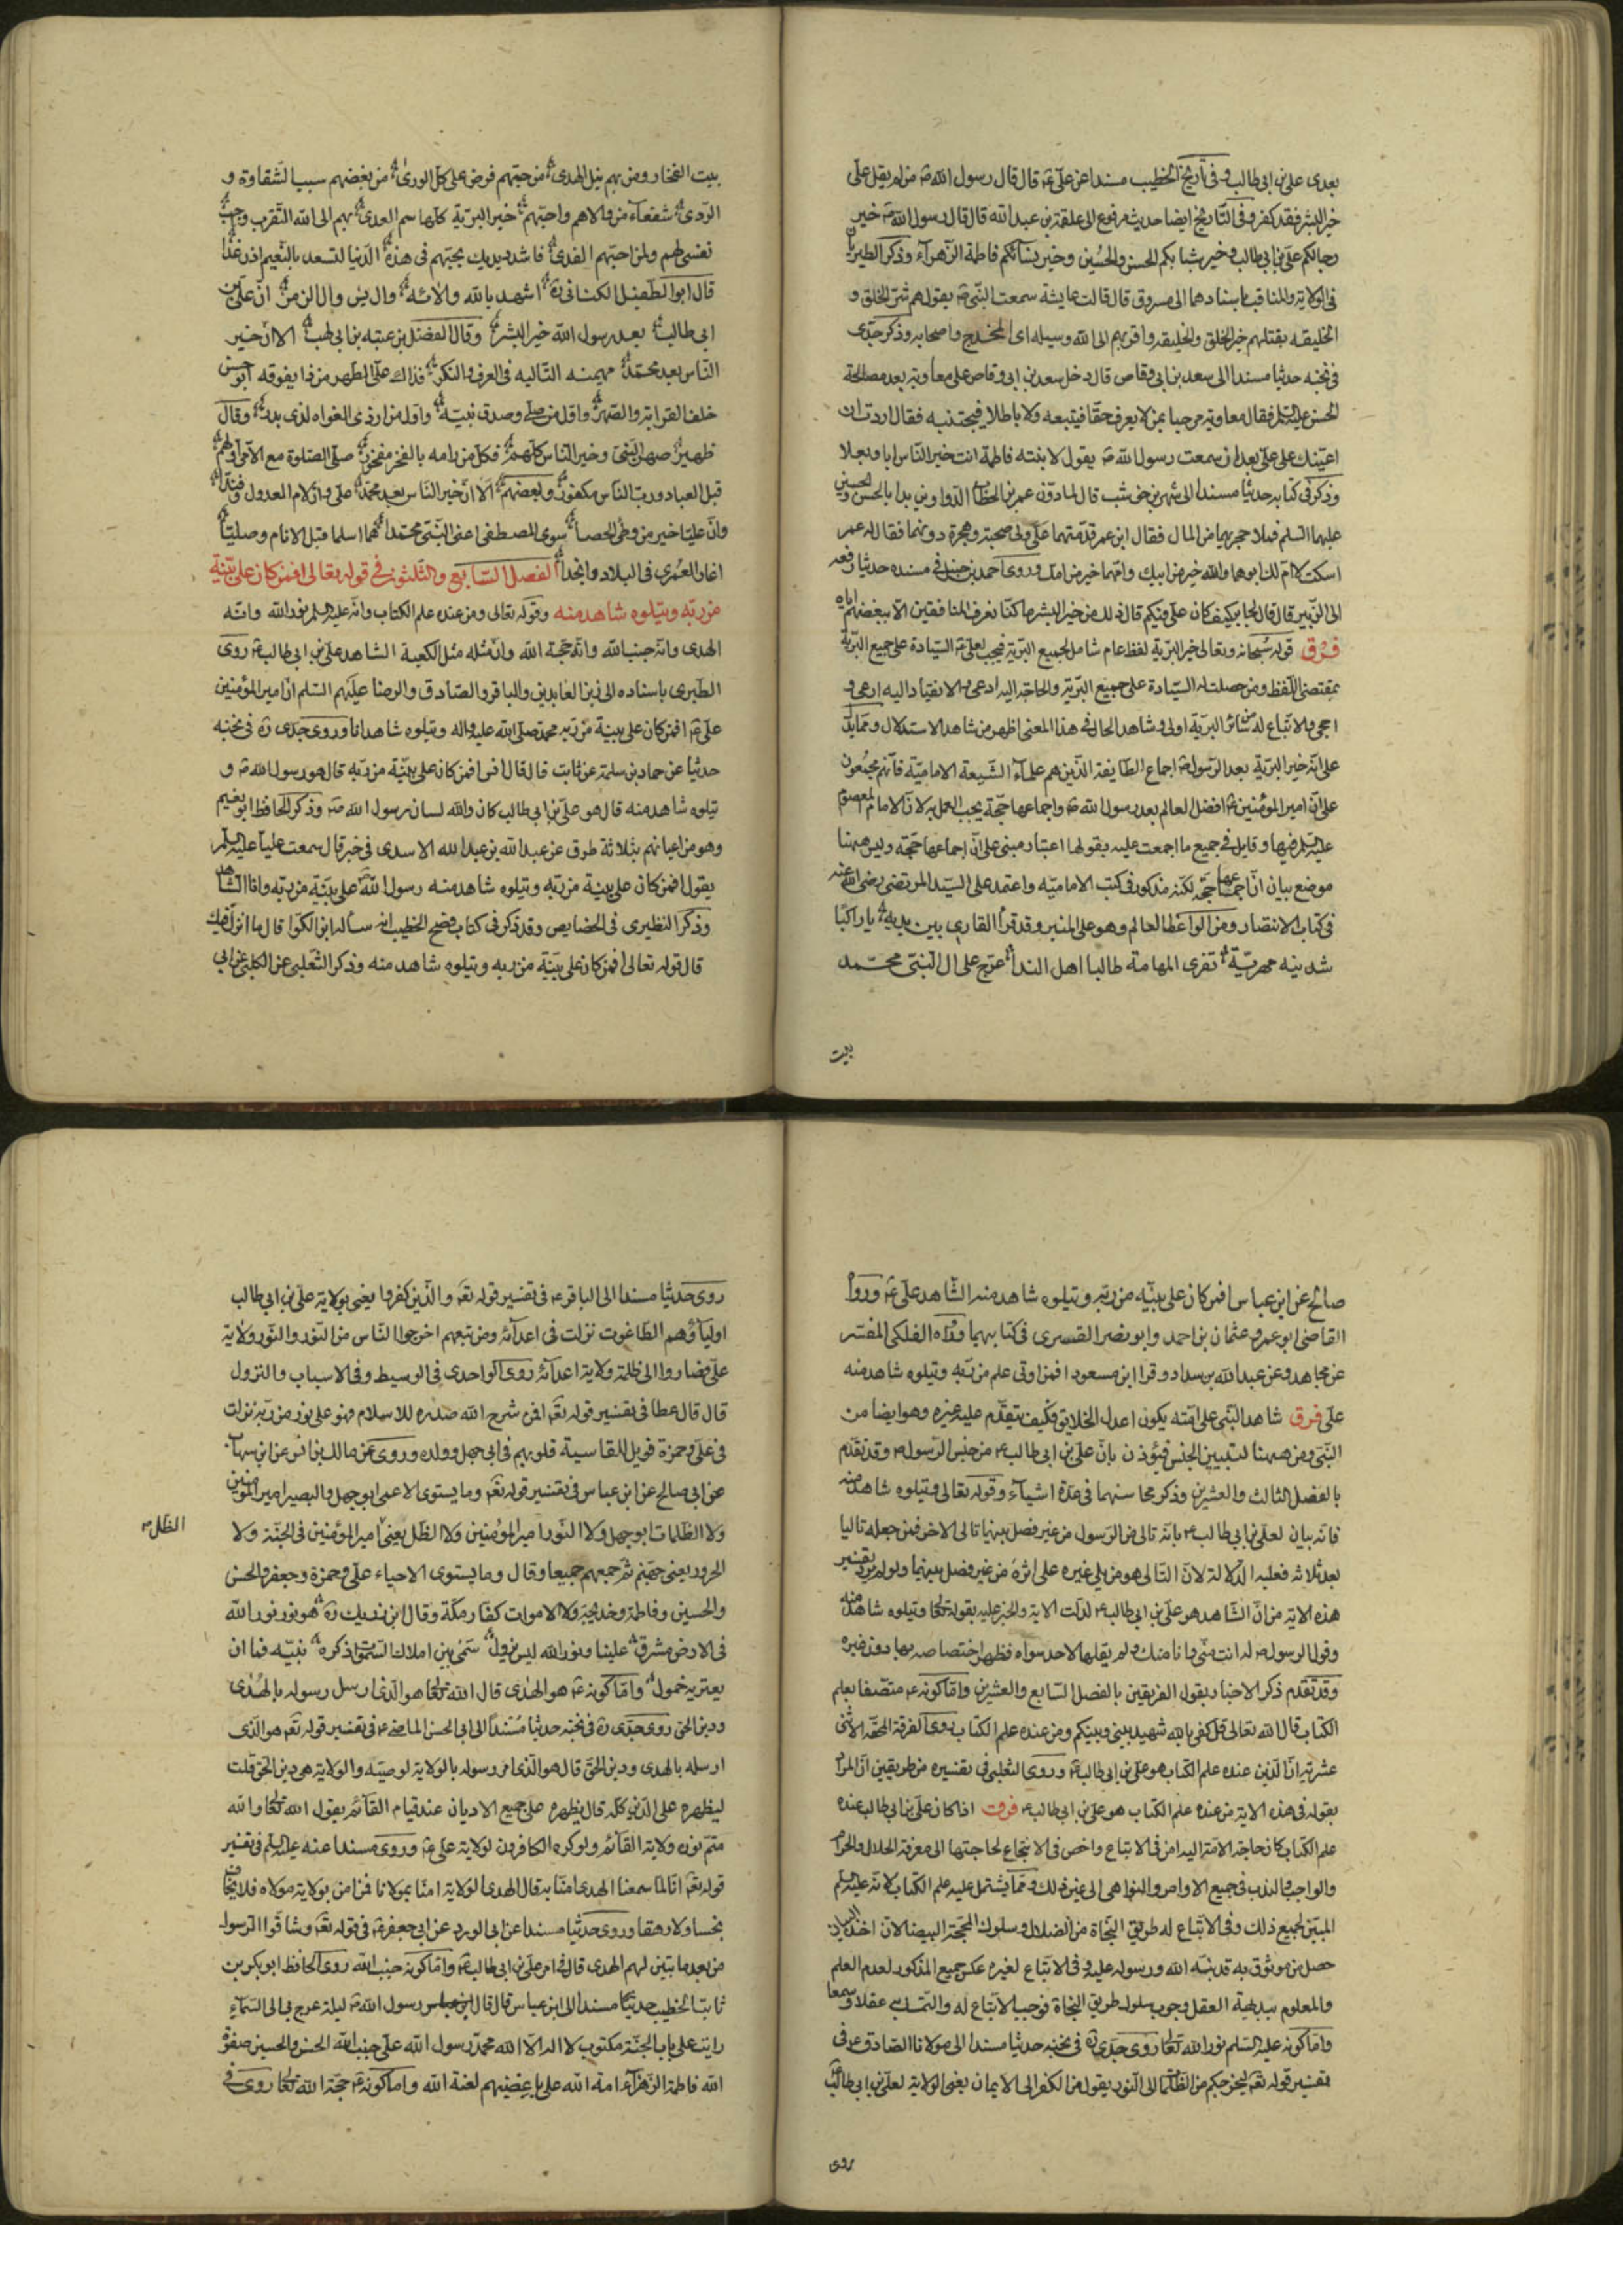 بعدى على بن ابى طالب و فى تاريخ الخطيب مسندا عن على ع قال قال رسول الله ص من لم يقل على
خير البشر فقد كفر و فى التاريخ ايضا حديث مرفوع الى علقمة بن عبد الله قال قال رسول الله ص خير
رجالكم على بن ابى طالب و خير شبابكم الحسن والحسين و خير نسائكم فاطمة الزهراء و ذكر الطبريان
فى الولاية والمناقب باسنادهما الى مسروق قال قالت عايشة سمعت النبى ص يقول هم شر الخلق و
الخليقه يقتلهم خير الخلق والخليقه واقربهم الى الله وسيله اى المخدج واصحابه وذكر جدى
فى نخبه حديثا مسندا الى سعد بن ابى وقاص قال دخل سعد بن ابى وقاص على معاوية بعد مصالحة
الحسن عليه السلم فقال معاوية مرحبا بمن لا يعرف حقا فيتبعه ولا باطلا فيجتنبه فقال اردت ان
اعينك على على بعد ان سمعت رسول الله ص يقول لابنته فاطمة انت خير الناس ابا وبعلا
وذكر فى كتابه حديثا مسندا الى شهر بن حوشب قال لما دون عمر بن الخطاب الدواوين بدا بالحسن والحسين
عليهما السلم فملا حجرهما من المال فقال ابن عمر قدمتهما على ولى صحبة وهجرة دونهما فقال له عمر
اسكت لا ام لك ابوهما والله خير من ابيك وامهما خير من امك وروى احمد بن حنبل فى مسنده حديثا رفعه
الى الزبير قال قال لجابر كيف كان على فيكم قال ذلك من خير البشر ما كنا نعرف المنافقين الا ببغضهم اياه
فرق قوله سبحانه وتعالى خير البرية لفظ عام شامل لجميع البرية فيجب لعلى ع السيادة على جميع البرية
بمقتضى اللفظ ومن حصلت له السيادة على جميع البرية والحاجة اليه ادعى والانقياد اليه ارعى و
احجى والاتباع له من سائر البرية اولى وشاهد الحال فى هذا المعنى اظهر من شاهد الاستدلال ومما يدل
على انه خير البرية بعد الرسول ص اجماع الطايفة الذين هم علماء الشيعة الامامية فانهم مجمعون
على ان امير المؤمنين ع افضل العالم بعد رسول الله ص واجماعها حجة يجب العمل به لان الامام المعصوم
عليه السلم فيها وقايل فى جميع ما اجمعت عليه بقولها اعتبار مبنى على ان اجماعها حجة وليس ههنا
موضع بيان ان اجماعها حجة لكنه مذكور فى كتب الاماميه واعتمد على السيد المرتضى رضى الله عنه
فى كتاب الانتصار ومن الواعظ العالم وهو على المنبر وقد قرأ القارى بين يديه يا راكبا
شدنيه مهرية تفرى المهامة طالبا اهل الندا عرج على ال النبى محمد
بيت
بيت الفخار ومن بهم نيل الهدى من حبهم فرض على كل الورى من بغضهم سببا لشقاوة و
الردى شفعاء من والاهم واحبهم خير البرية كلها سم العدى بهم الى الله التقرب وجب
نفسى لهم ولمن احبهم الفدى فاشدد يديك بحبهم فى هذه الدنيا لتسعد بالنعيم اذن غدا
قال ابو الطفيل الكنانى ره اشهد بالله والائه وال يس وال الزمر ان على بن
ابى طالب بعد رسول الله خير البشر وقال الفضل بن عتبه بن ابى لهب الا ان خير
الناس بعد محمد مهيمنه التاليه فى العرف والنكر فذاك على الطهر من ذا يفوقه ابو حسن
خلف القرابة والصهر واول من صلى وصدق نبيه واول من اردى الغواه لدى بدر وقال
ظهير صهر النبى وخير الناس كلهم فكل من رامه بالفخر مفخور صلى الصلوة مع الامى اولهم
قبل العباد ورب الناس مكفور ولبعضهم الا ان خير الناس بعد محمد على وان لام العدول وفندا
وان عليا خير من وطى الحصا سوى المصطفى اعنى النبى محمدا هما اسلما قبل الانام وصليا
اغار العمرى فى البلاد وانجدا الفصل السابع والثلثون فى قوله تعالى افمن كان على بينة
من ربه ويتلوه شاهد منه وقوله تعالى ومن عنده علم الكتاب وانه عليه السلم نور الله وانه
الهدى وانه جنب الله وانه حجة الله وان مثله مثل الكعبة الشاهد على بن ابى طالب ع روى
الطبرى باسناده الى زين العابدين والباقر والصادق والرضا عليهم السلم ان امير المؤمنين
على ع افمن كان على بينة من ربه محمد صلى الله عليه واله ويتلوه شاهد انا وروى جدى ره فى نخبه
حديثا عن حماد بن سلمة عن ثابت قال قال انس افمن كان على بينة من ربه قال هو رسول الله ص و
يتلوه شاهد منه قال هو على بن ابى طالب كان والله لسان رسول الله ص وذكر الحافظ ابو نعيم
وهو من اعيانهم بثلاثة طرق عن عبد الله بن عبد الله الاسدى فى خبر قال سمعت عليا عليه السلم
يقول افمن كان على بينة من ربه ويتلوه شاهد منه رسول الله على بينة من ربه وانا الشاهد
وذكر النطيرى فى الخصايص وقد ذكر فى كتاب فصيح الخطيب انه ساله ابن الكوا قال ما انزل فيك
قال قوله تعالى افمن كان على بينة من ربه ويتلوه شاهد منه وذكر الثعلبى عن الكلبى عن ابى
صالح عن ابن عباس افمن كان على بينه من ربه ويتلوه شاهد منه الشاهد على ع ورووا
القاضى ابو عمرو عثمان بن احمد وابو نصر القسرى فى كتابيهما ورواه الفلكى المفسر
عن مجاهد وعن عبد الله بن سداد وقرا ابن مسعود افمن اوتى علم من ربه ويتلوه شاهد منه
على فرق شاهد النبى على امته يكون اعدل الخلايق فكيف يتقدم عليه غيره وهو ايضا من
النبى ومن ههنا لتبيين الجنس فيؤذن بان على بن ابى طالب ع من جنس الرسول ص وقد تقدم
بالفصل الثالث والعشرين وذكر محاسنهما فى عدة اشياء وقوله تعالى ويتلوه شاهد منه
فانه بيان لعلى بن ابى طالب ع بانه تالى من الرسول من غير فصل بينهما تالى الاخر فمن جعله تاليا
بعد ثلاثه فعليه الدلالة لان التالى هو من يلى غيره على اثره من غير فصل بينهما ولو لم يرد بتفسير
هذه الاية من ان الشاهد هو على بن ابى طالب ع لدلت الاية والخبر عليه بقوله تعالى ويتلوه شاهد منه
وقول الرسول ص له انت منى وانا منك ولم يقلها لاحد سواه فظهر اختصاصه بها دون غيره
وقد تقدم ذكر الاخبار بقول الفريقين بالفصل السابع والعشرين واما كونه ع متصفا بعلم
الكتاب قال الله تعالى قل كفى بالله شهيد بينى وبينكم ومن عنده علم الكتاب روى الفرقة المحقه الاثنى
عشرية ان الذين عنده علم الكتاب هو على بن ابى طالب ع وروى الثعلبى فى تفسيره من طريقين ان المراد
بقوله فى هذه الاية من عنده علم الكتاب هو على بن ابى طالب ع فرق اذا كان على بن ابى طالب عنده
علم الكتاب كان حاجة الامة اليه امر فى الاتباع واخص فى الانتجاع لحاجتها الى معرفة الحلال والحرام
والواجب والندب فى جميع الاوامر والنواهى الى غير ذلك ومما يشتمل عليه علم الكتاب لانه عليه السلم
المبين لجميع ذلك وفى الاتباع له طريق النجاة من الضلال وسلوك المحجة البيضا لان اخذ البيان
حصل من موثوق به قد بينه الله ورسوله عليه وفى الاتباع لغيره عكس جميع المذكور لعدم العلم
والمعلوم ببديهة العقل وجوب سلوك طريق النجاة فوجب الاتباع له والتمسك به عقلا وسمعا
واما كونه عليه السلم نور الله تعالى روى جدى ره فى نخبه حديثا مسندا الى مولانا الصادق ع فى
تفسير قوله تعه ليخرجكم من الظلمات الى النور يقول من الكفر الى الايمان يعنى الولاية لعلى بن ابى طالب ع
روى
روى حديثا مسندا الى الباقر ع فى تفسير قوله تعه والذين كفروا يعنى بولاية على بن ابى طالب
اولياؤهم الطاغوت نزلت فى اعدائه ومن تبعهم اخرجوا الناس من النور والنور ولاية
على فصاروا الى ظلمة ولاية اعدائه روى الواحدى فى الوسيط وفى الاسباب والنزول
قال قال عطا فى تفسير قوله تعه افمن شرح الله صدره للاسلام فهو على نور من ربه نزلت
فى على وحمزة فويل للقاسية قلوبهم فى ابى جهل وولده وروى عن مالك بن انس عن ابن شهاب
عن ابى صالح عن ابن عباس فى تفسير قوله تعه وما يستوى الاعمى ابو جهل والبصير امير المؤمنين
ولا الظلمات ابو جهل ولا النور امير المؤمنين ولا الظل يعنى امير المؤمنين فى الجنة ولا
الظل م
الحرور يعنى جهنم ثم جمعهم جميعا وقال وما يستوى الاحياء على وحمزة وجعفر والحسن
والحسين وفاطمة وخديجة ولا الاموات كفار مكة وقال ابن رزيك ره هو نور نور الله
فى الارض مشرق علينا ونور الله ليس يزول سمى بين املاك السموات ذكره نبيه فما ان
يعتريه خمول واما كونه ع هو الهدى قال الله تعالى هو الذى ارسل رسوله بالهدى
ودين الحق روى جدى ره فى نخبه حديثا مسندا الى ابى الحسن الماضى ع فى تفسير قوله تعه هو الذى
ارسله بالهدى ودين الحق قال هو الذى امر رسوله بالولاية لوصيه والولاية هى دين الحق قلت
ليظهره على الدين كله قال يظهره على جميع الاديان عند قيام القائم يقول الله تعالى والله
متم نوره ولاية القائم ولو كره الكافرون لولاية على ع وروى مسندا عنه عليه السلم فى تفسير
قوله تعه انا لما سمعنا الهدى امنا به قال الهدى الولاية امنا بمولانا فمن امن بولاية مولاه فلا يخاف
بخسا ولا رهقا وروى حديثا مسندا عن ابى الورد عن ابى جعفر ع فى قوله تعه وشاقوا الرسول
من بعد ما تبين لهم الهدى قال فى امر على بن ابى طالب ع واما كونه جنب الله روى الحافظ ابو بكر بن
ثابت الخطيب حديثا مسندا الى ابن عباس قال قال رسول الله ص ليلة عرج بى الى السماء
رايت على باب الجنة مكتوب لا اله الا الله محمد رسول الله على جنب الله الحسن والحسين صفوة
الله فاطمة الزهراء امة الله على باغضيهم لعنة الله واما كونه ع حجة الله تعالى روى فى